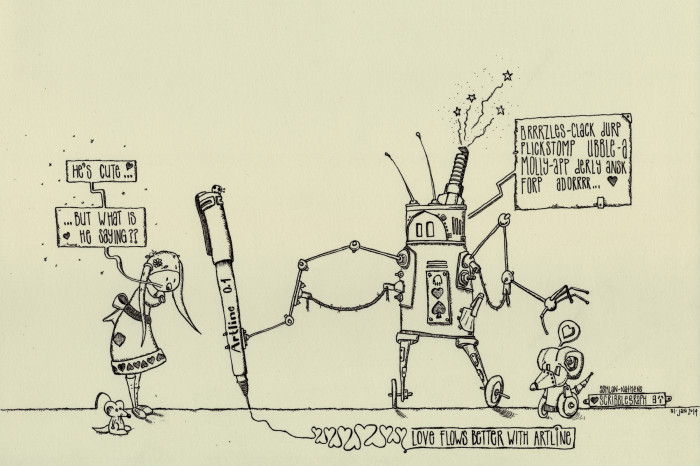 HE'S CUTE...
...BUT WHAT IS
HE SAYING??
Artline 0.1
BRRRZLES-CLACK DURP
FLICKSTOMP UBBLE-A
MOLLY-APP DERLY ANSK
FORP ADORRRR...
LOVE FLOWS BETTER WITH ARTLINE
SCRIBBLEGRAPH
31·JAN 2014